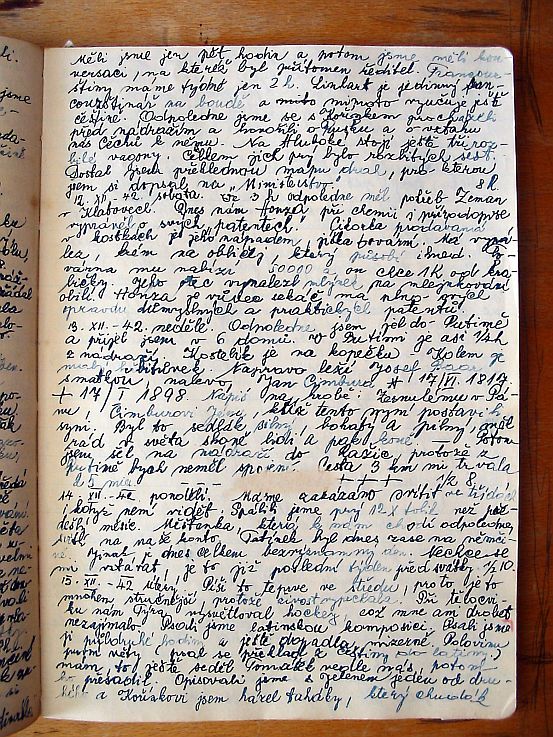 Měli jsme jen pět hodin a potom jsme měli kon-
versaci, na které byl přítomen ředitel. Francouz-
štiny máme týdně jen 2 h. Linhart je jediný fran-
couzštinář na budě a mimoto vyučuje ještě
češtině. Odpoledne jsme se s Kořínkem procházeli
před nádražím a hovořili o Rusku a o vztahu
nás Čechů k němu. Na Hluboké stojí ještě tři roz-
bité vagony. Celkem jich prý bylo rozbitých šest.
Dostal jsem přehlednou mapu drah, pro kterou
jsem si dopsal na „Ministerstvo. 8 h
12. XII. -42. sobota. Ve 3 h odpoledne měl pohřeb Zeman
v Klatovech. Dnes nám Honza při chemii a přírodopise
vyprávěl o svých patentech. Cikorka prodávaná
v kostkách je jeho nápadem, jitka
krém na obličej, který působí ihned.
mu nabízí 50000 a on chce 1K od kra-
bičky. Jeho otec vynalezl mlýnek na
obilí. Honza je ma plno svých
opravdu důmyslných a praktických patentů.
13. XII. -42. neděle. Odpoledne jsem jel do Putimě
a přijel jsem v 6 domů. V Putimi je asi 1/4 h
z nádraží. Kostelík je na kopečku. Kolem je
malý hřbitůvek. Napravo leží Josef
smatkou, nalevo Jan Cimbura * 17/VI. 1814
+ 17/I 1898. Nápis na hrobě: Zesnulému v Pá-
nu, Cimburovi Janu, tento nyní postavili
syni. Byl to sedlák silný, bohatý a pilný, měl
rád v světa skoně lidi a pak koně. Potom
jsem šel na nádraží do Ražic, protože z
Putimě bych neměl spojení. Cesta 3 km mi trvala
25 min. +++ 1/2 8.
14. XII. -42 pondělí. - Máme zakázáno svítit ve třídách
i když není vidět. Spálili jsme prý 12 X tolik než před-
dešlý měsíc. Měšťanka, která k nám chodí odpoledne,
svítí na naše konto. Tatínek byl dnes zase na němči-
ně. Jinak je dnes celkem bezvýznamný den. Nechce se
mi vstávat, je to již poslední týden před svátky. 1/2 10.
15. XII. -42 úterý. Píši to teprve ve středu, proto je to
mnohem stručnější, protože Při tělocvi-
ku nám Fýra vysvětloval hockey což mne ani drobet
nezajímalo. Psali jsme latinskou komposici. Psali jsme
ji půldruhé hodiny a ještě dopadla mizerně. Polovinu
jsem věty psal se překlad z češtiny do latiny,
mám, to ještě seděl vedle nás, potom
ho přesadil. Opisovali jsme s Jelenem jeden od dru-
hého a Kořínkovi jsem házel taháky, který chudák